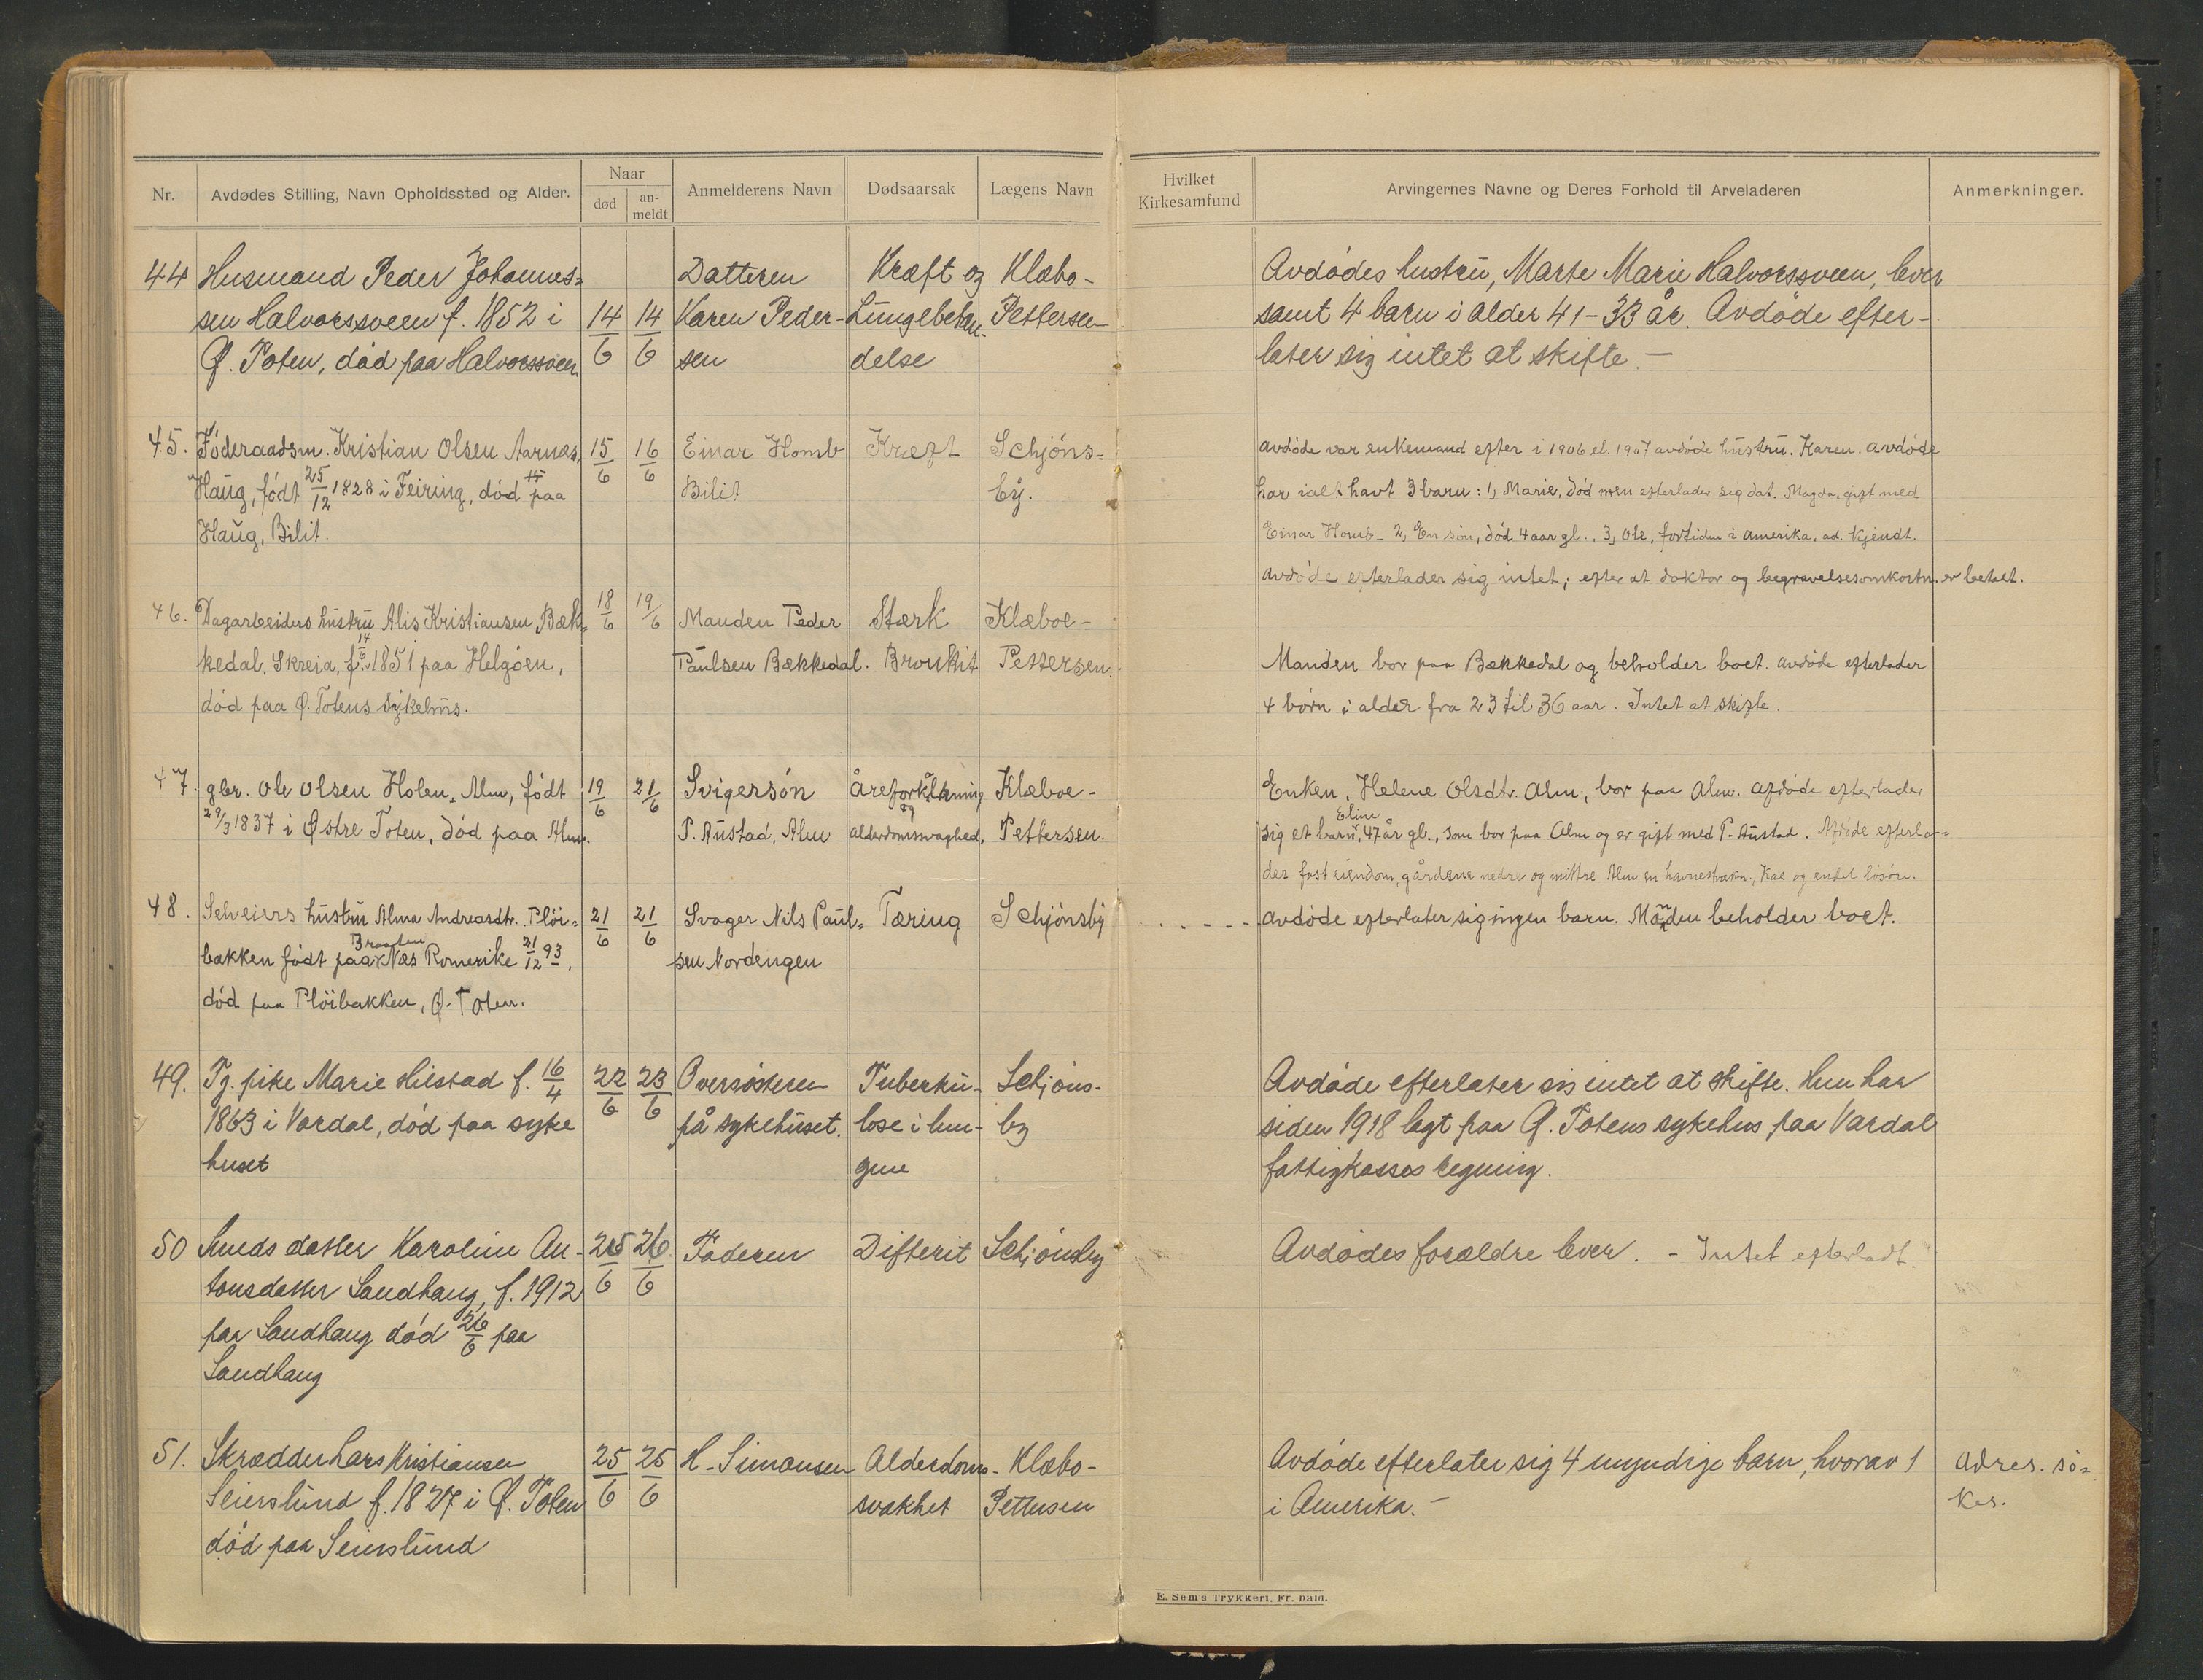 Nr.
Avdødes Stilling, Navn Opholdssted og Alder.
Naar
død
an-
meldt
Anmelderens Navn
Dødsaarsak
Lægens Navn
Hvilket
Kirkesamfund
Arvingernes Navne og Deres Forhold til Arveladeren
Anmerkninger.
44 Husmand Peder Johannes= Datteren Kræft og Klæbo- Avdødes hustru, Marte Marie Halvorssveen, lever
sen Halvorssveen f. 1852 i 14/6 14/6 Karen Peder- Lungebetæn- Pettersen samt 4 barn i alder 41-33 år. Avdøde efter-
Ø. Toten, død paa Halvorssveen sen delse later sig intet at skifte. -
45. Føderaadsm. Kristian Olsen Aarnes, 15/6 16/6 Einar Homb Kræft Schjøns= avdøde var enkemand efter i 1906 el. 1907 avdøde hustru. Karen. avdøde
Haug, født 25/12 1828 i Feiring, død paa Bilit by. har ialt havt 3 barn: 1, Marie, død men efterlader sig dat. Magda, gift med
Haug, Bilit. Einar Homb - 2, En søn, død 4 aar gl., 3, Ole, fortiden i amerika, ad. kjendt.
avdøde efterlader sig intet; efter at doktor og begravelsesomkostn. er betalt.
46. Dagarbeiders hustru Alis Kristiansen Bæk= 18/6 19/6 Manden Peder Stærk Klæboe-
kedal, Skreia, f. 14/6 1851 paa Helgøen, Paulsen Bækkedal. Bronkit Pettersen. Manden bor paa Bækkedal og beholder boet. avdøde efterlader
død paa Ø. Totens sykehus. 4 børn i alder fra 23 til 36 aar. Intet at skifte.
47. gbr. Ole Olsen Holen, Alm, født 19/6 21/6 Svigersøn Åreforkalkning Klæboe- Enken, Helene Olsdtr. Alm, bor paa Alm. afdøde efterlader
29/3 1837 i Østre Toten, død paa Alm. P. Austad, Alm og alderdomssvaghed, Pettersen. sig et barn, Eline 47 år gl., som bor paa Alm og er gift med P. Austad. Afdøde efterla=
der fast eiendom, gårdene nedre og mittre Alm en havnestrækn., Kal og endel løsøre.
48. Selveiers hustru Alma Andreasdtr. Pløi= 21/6 21/6 Svoger Nils Paul= Tæring Schjønsby avdøde efterlater sig ingen barn. Manden beholder boet.
bakken født paa Braaten Næs Romerike 21/12 93, sen Nordengen
død paa Pløibakken, Ø. Toten.
49. Tj. pike Marie Hilstad f. 16/4 22/6 23/6 Oversøsteren Tuberku- Schjøns- Avdøde efterlater sig intet at skifte. Hun har
1863 i Vardal, død paa syke på sykehuset. lose i lun- by siden 1918 lagt paa Ø. Totens sykehus paa Vardal
huset gene fattigkasses regning.
50 Smeds datter Karoline An- 25/6 26/6 Faderen Difterit Schjønsby Avdødes forældre lever. - Intet efterladt.
tonsdatter Sandhaug, f. 1912
paa Sandhaug død 26/6 paa
Sandhaug
51. Skrædder Lars Kristiansen 25/6 25/6 H. Simonsen Alderdoms- Klæbo- Avdøde efterlater sig 4 myndige barn, hvorav 1 Adres. sø=
Seierslund f. 1827 i Ø. Toten svakhet Pettersen i Amerika. - kes.
død paa Seierslund
E. Sem's Trykkeri, Fr. hald.